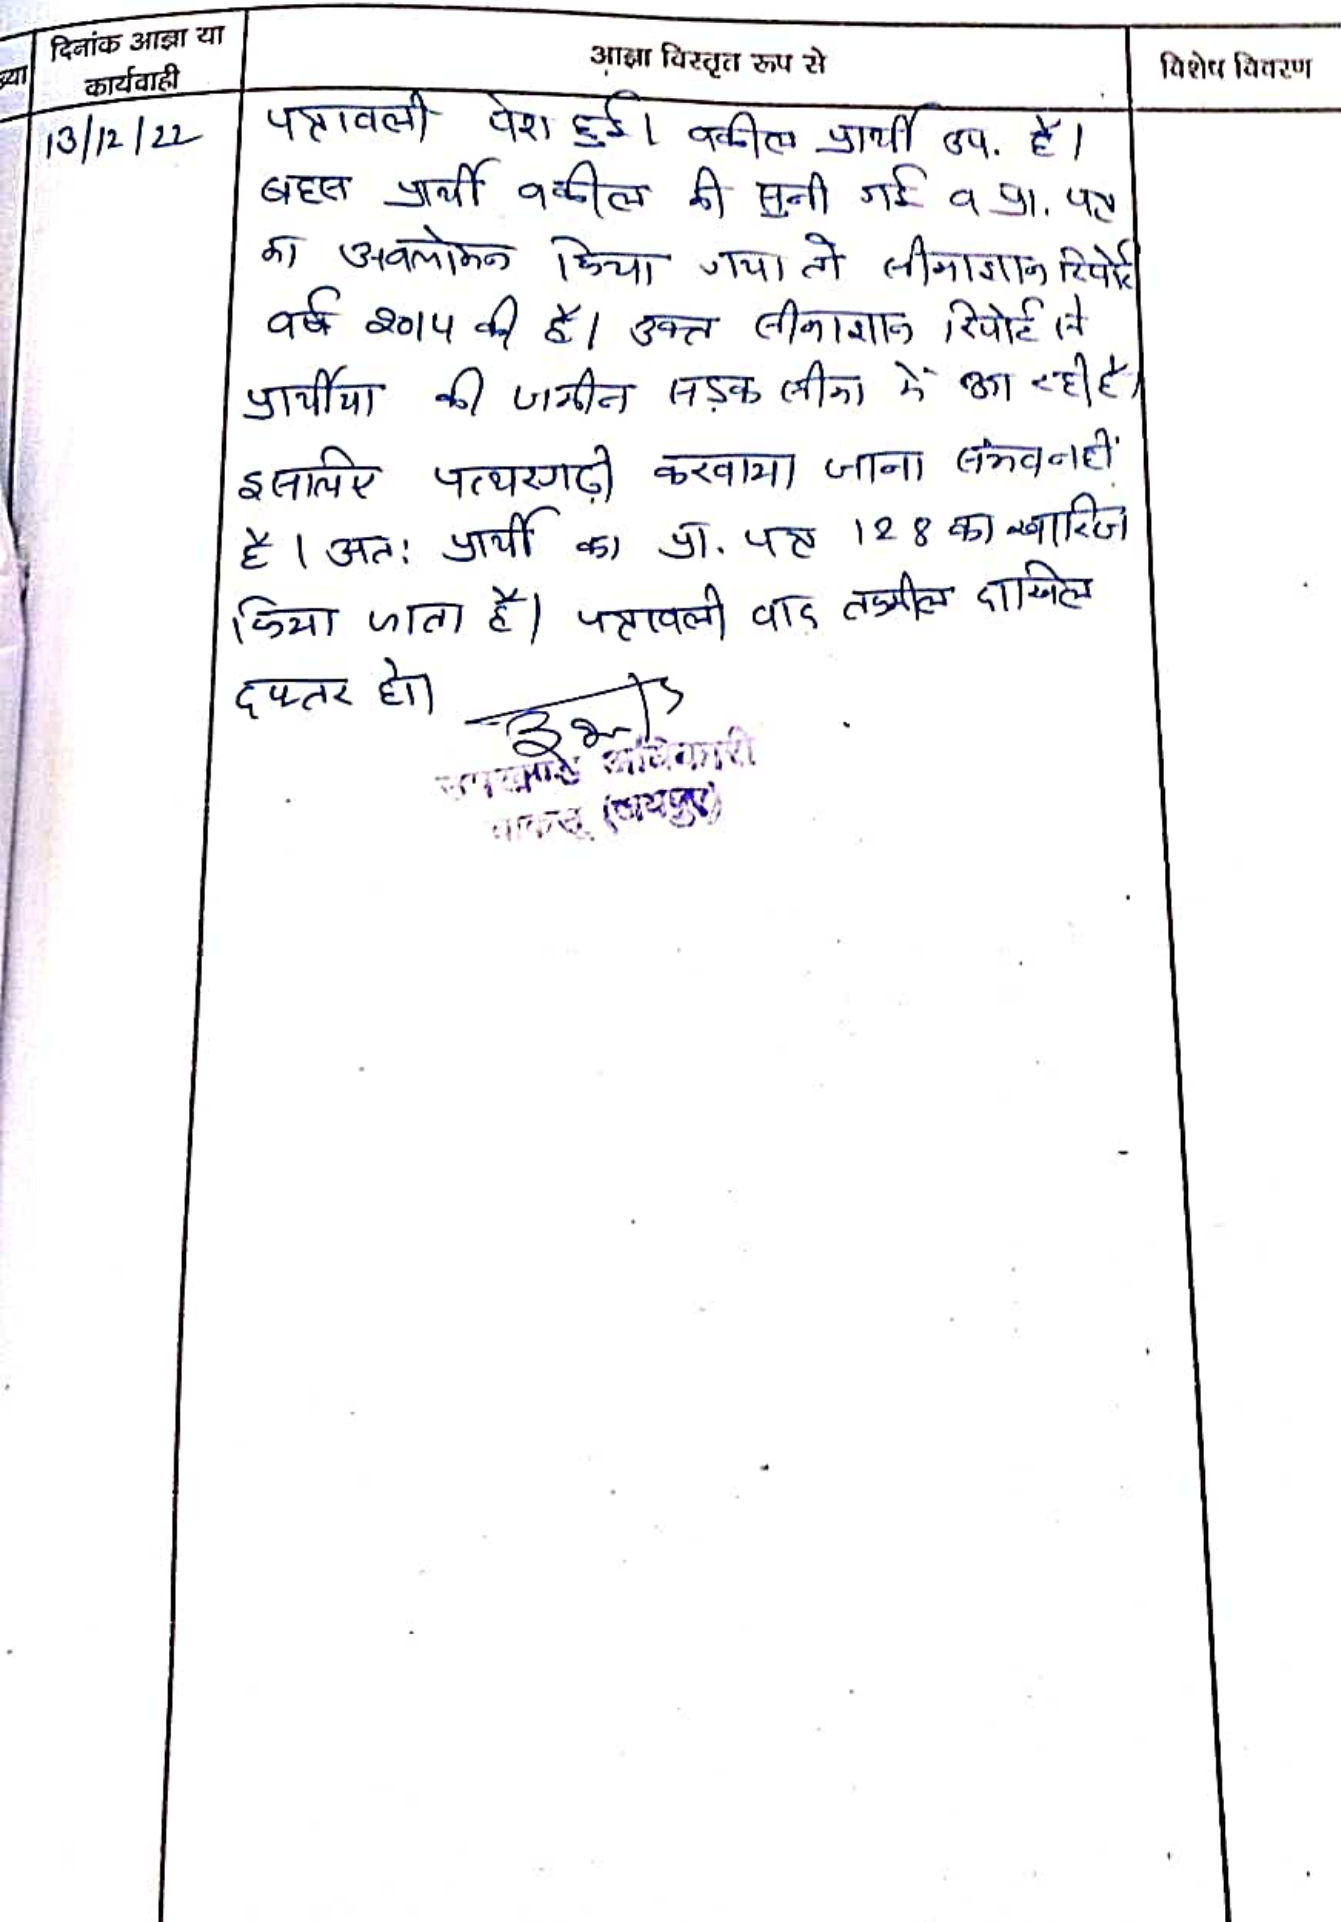 ख्या
दिनांक आज्ञा या
कार्यवाही
आज्ञा विस्तृत रूप से
विशेष विवरण
13/12/22
पत्रावली पेश हुई। वकील प्रार्थी उप. है।
बहस प्रार्थी वकील की सुनी गई व प्रा. पत्र
का अवलोकन किया गया तो सीमाज्ञान रिपोर्ट
वर्ष 2014 की है। उक्त सीमाज्ञान रिपोर्ट में
प्रार्थीया की जमीन सड़क सीमा में आ रही है।
इसलिए पत्थरगढ़ी करवाया जाना संभव नहीं
है। अतः प्रार्थी का प्रा. पत्र 128 का खारिज
किया जाता है। पत्रावली बाद तकमील दाखिल
दफ्तर हो।
उपखण्ड अधिकारी
चाकसू (जयपुर)